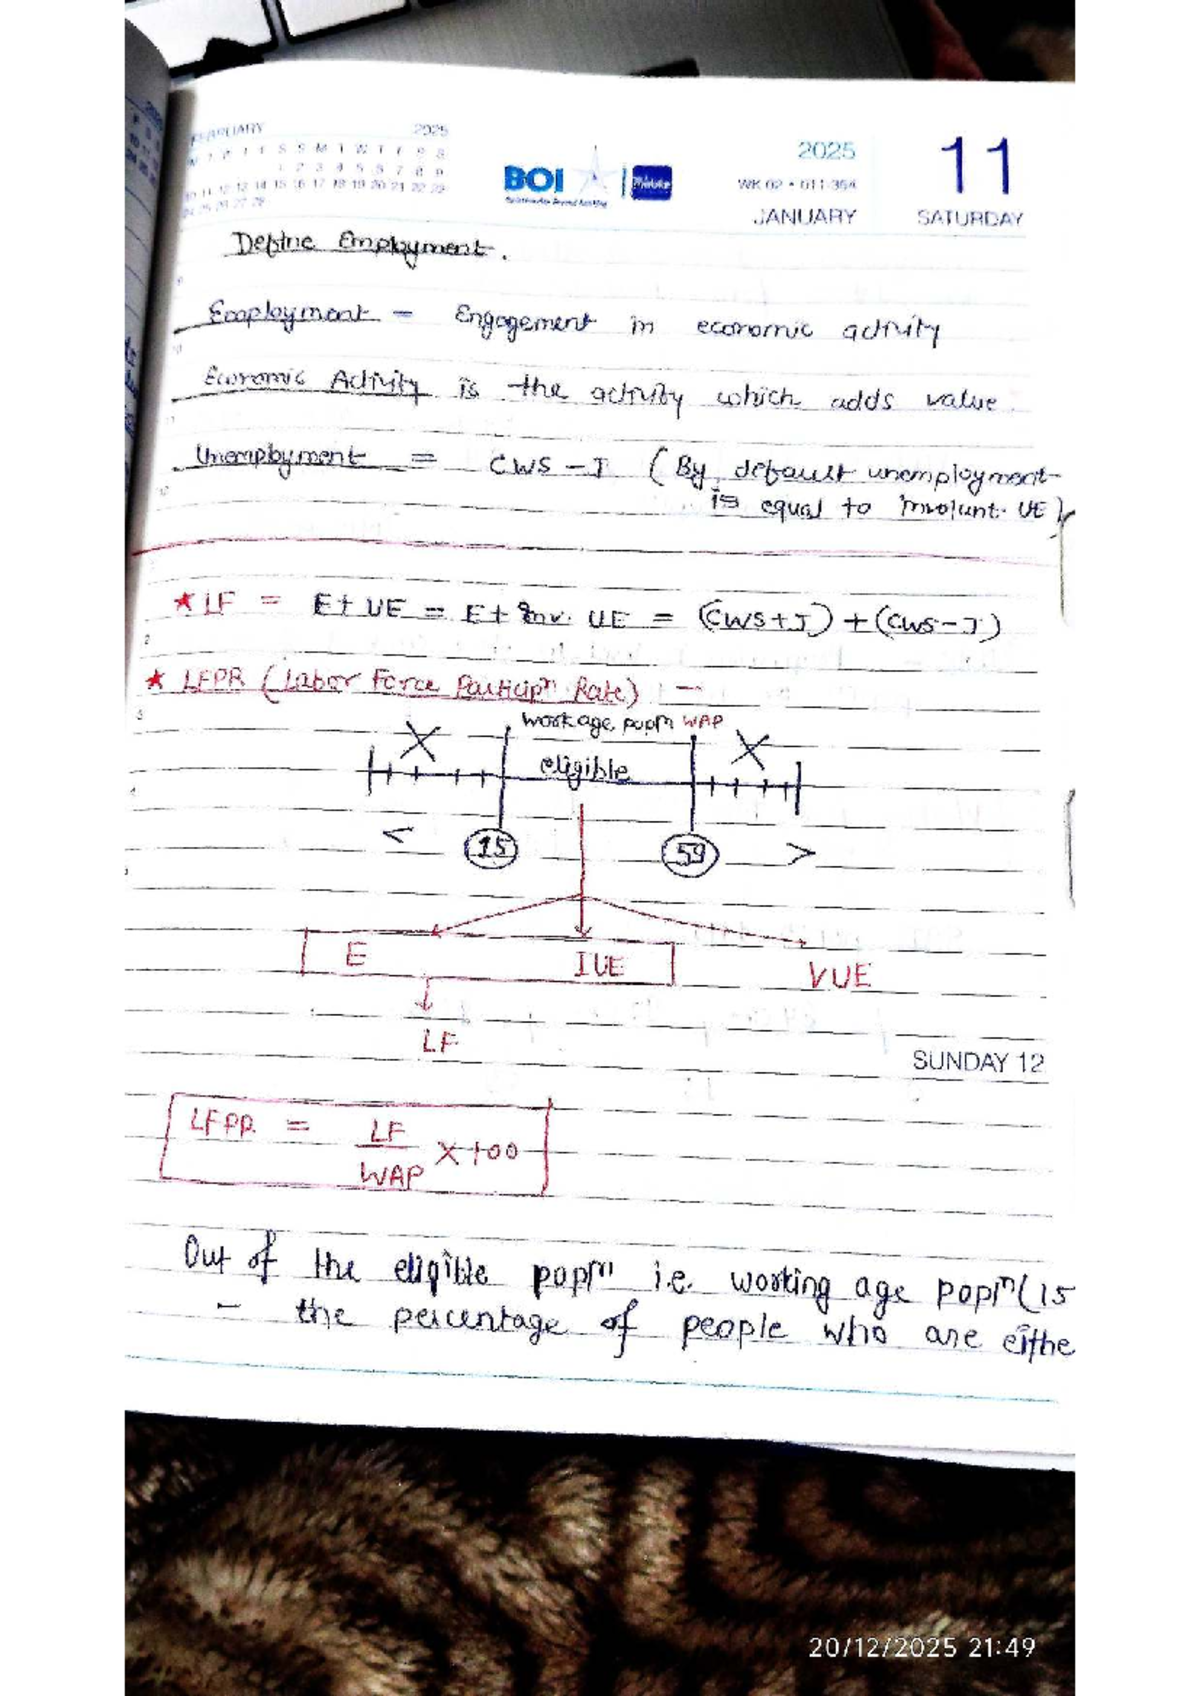 FEBRUARY 2025
2025
11
WK 02 • 011-354
BOI
JANUARY
SATURDAY
Define Employment.
Employment - Engagement in economic activity
Economic Activity is the activity which adds value
Unemployment = CWS - J (By default unemployment
is equal to involunt. UE)
★ LF = E + UE = E + Inv. UE = (CWS+J) + (CWS-J)
★ LFPR (Labor Force Particip^n Rate) -
work age pop^n WAP
X eligible X
< 15 59 >
E IUE VUE
LF
SUNDAY 12
LFPR = LF/WAP X 100
Out of the eligible pop^n i.e. working age pop^n (15
- the percentage of people who are eithe
20/12/2025 21:49